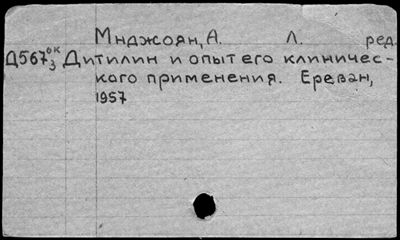 Мнджоян, А. Л. ред.
Д567 ок 3 Дитилин и опыт его клиничес-
кого применения. Ереван,
1957